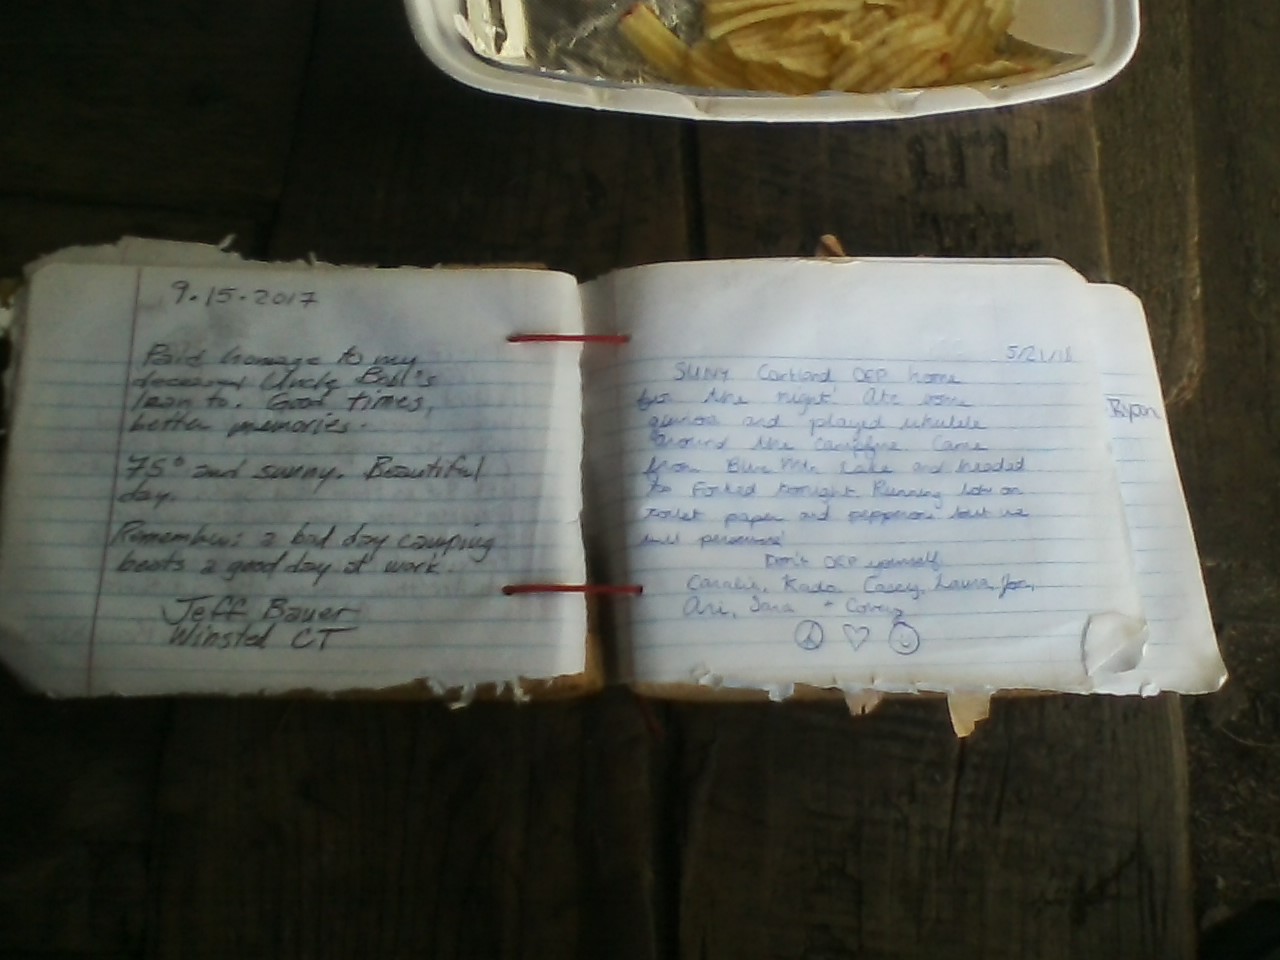 9.15.2017
Paid homage to my
deceased Uncle Bob's
lean to. Good times,
better memories.
75° and sunny. Beautiful
day.
Remember: a bad day camping
beats a good day at work.
Jeff Bauer
Winsted CT
5/21/18
SUNY Cortland OEP home
for the night. Ate some
quinoa and played ukulele
around the campfire. Came
from Blue Mtn. Lake and headed
to Forked tonight. Running low on
toilet paper and pepperoni but we
will persevere!
Don't OEP yourself
Casey, Laura, Jon,
Ari, Sara + Corey
Ryan